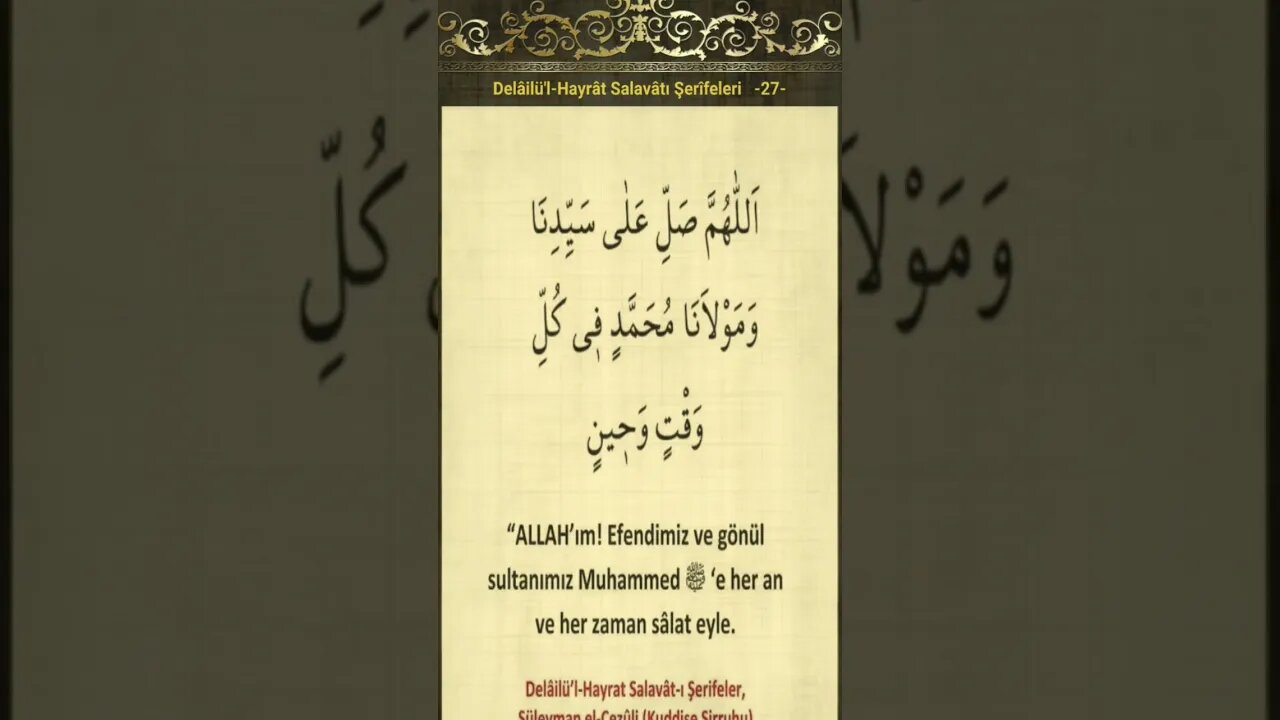 Delâilü'l-Hayrât Salavâtı Şerîfeleri -27-
اَللّٰهُمَّ صَلِّ عَلٰى سَيِّدِنَا
وَمَوْلاَنَا مُحَمَّدٍ فٖى كُلِّ
وَقْتٍ وَحٖينٍ
“ALLAH’ım! Efendimiz ve gönül
sultanımız Muhammed ﷺ ‘e her an
ve her zaman sâlat eyle.
Delâilü’l-Hayrat Salavât-ı Şerifeler,
Süleyman el-Cezûli (Kuddise Sirruhu)